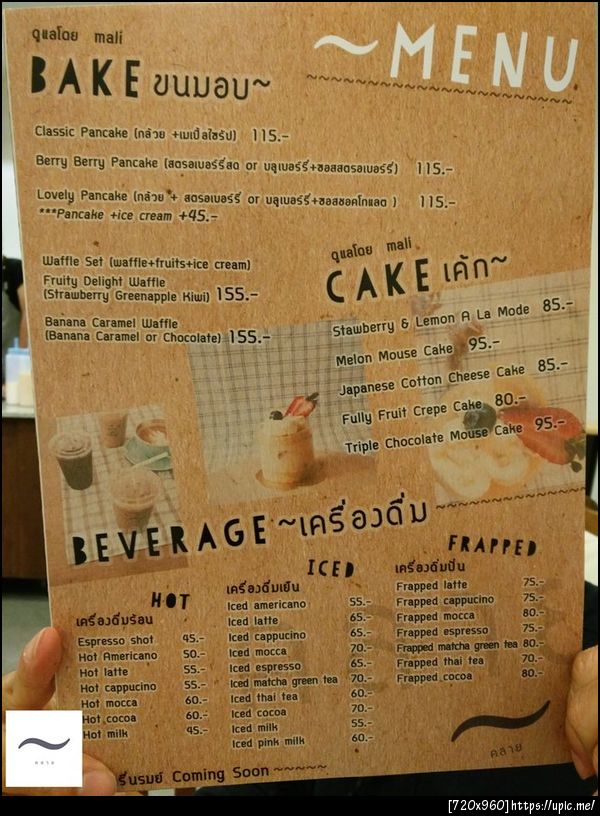 ดูแลโดย mali
~MENU
BAKE ขนมอบ~
Classic Pancake (กล้วย +เมเปิ้ลไซรัป) 115.-
Berry Berry Pancake (สตรอเบอร์รี่สด or บลูเบอร์รี่+ซอสสตรอเบอร์รี่) 115.-
Lovely Pancake (กล้วย + สตรอเบอร์รี่ or บลูเบอร์รี่+ซอสชอคโกแลต ) 115.-
***Pancake +ice cream +45.-
Waffle Set (waffle+fruits+ice cream)
Fruity Delight Waffle
(Strawberry Greenapple Kiwi) 155.-
Banana Caramel Waffle
(Banana Caramel or Chocolate) 155.-
ดูแลโดย mali
CAKE เค้ก~
Stawberry & Lemon A La Mode 85.-
Melon Mouse Cake 95.-
Japanese Cotton Cheese Cake 85.-
Fully Fruit Crepe Cake 80.-
Triple Chocolate Mouse Cake 95.-
BEVERAGE ~เครื่องดื่ม
HOT
เครื่องดื่มร้อน
Espresso shot 45.-
Hot Americano 50.-
Hot latte 55.-
Hot cappucino 55.-
Hot mocca 60.-
Hot cocoa 60.-
Hot milk 45.-
ICED
เครื่องดื่มเย็น
Iced americano 55.-
Iced latte 65.-
Iced cappucino 65.-
Iced mocca 70.-
Iced espresso 65.-
Iced matcha green tea 70.-
Iced thai tea 60.-
Iced cocoa 70.-
Iced milk 55.-
Iced pink milk 60.-
FRAPPED
เครื่องดื่มปั่น
Frapped latte 75.-
Frapped cappucino 75.-
Frapped mocca 80.-
Frapped espresso 75.-
Frapped matcha green tea 80.-
Frapped thai tea 70.-
Frapped cocoa 80.-
คลาย
รื่นรมย์ Coming Soon ~~~~~
คลาย
[720x960]https://upic.me/